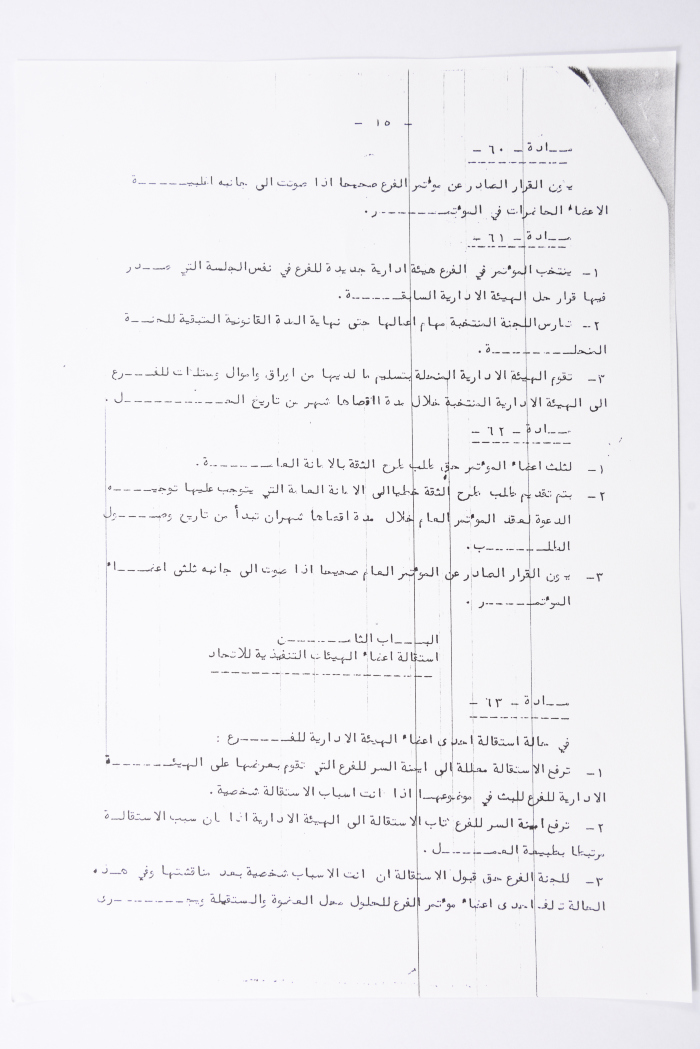 - ١٥ -
مـــادة - ٦٠ -
يكون القرار الصادر عن مؤتمر الفرع صحيحا اذا صوتت الى جانبه اغلبيـــــــة
الاعضاء الحاضرات في المؤتمـــــــــر.
مـــادة - ٦١ -
١- ينتخب المؤتمر في الفرع هيئة ادارية جديدة للفرع في نفس الجلسة التي صـــدر
فيها قرار حل الهيئة الادارية السابقـــــــة.
٢- تمارس اللجنة المنتخبة مهام اعمالها حتى نهاية المدة القانونية المتبقية للجنـــة
المنحلـــــــــــة.
٣- تقوم الهيئة الادارية المنحلة بتسليم ما لديها من اوراق واموال وممتلكات للفـــــرع
الى الهيئة الادارية المنتخبة خلال مدة اقصاها شهر من تاريخ الحـــــــــــل.
مـــادة - ٦٢ -
١- لثلث اعضاء المؤتمر حق طلب طرح الثقة بالامانة العامـــــــة.
٢- يتم تقديم طلب طرح الثقة خطيا الى الامانة العامة التي يتوجب عليها توجيـــــه
الدعوة لعقد المؤتمر العام خلال مدة اقصاها شهران تبدأ من تاريخ وصـــــول
الطلـــــــــب.
٣- يكون القرار الصادر عن المؤتمر العام صحيحا اذا صوت الى جانبه ثلثي اعضـــاء
المؤتمـــــــر.
البـــــاب الثامـــــــن
استقالة اعضاء الهيئات التنفيذية للاتحاد
مـــادة - ٦٣ -
في حالة استقالة احدى اعضاء الهيئة الادارية للفـــــــرع :
١- ترفع الاستقالة معللة الى امينة السر للفرع التي تقوم بعرضها على الهيئـــــــة
الادارية للفرع للبت في موضوعهـــا اذا كانت اسباب الاستقالة شخصية.
٢- ترفع امينة السر للفرع كتاب الاستقالة الى الهيئة الادارية اذا كان سبب الاستقالـــة
مرتبطا بطبيعة العمـــــــل.
٣- للجنة الفرع حق قبول الاستقالة ان كانت الاسباب شخصية بعد مناقشتها وفي هـــذه
الحالة تكلف احدى اعضاء مؤتمر الفرع للحلول محل العضوة والمستقيلة ويجـــــــرى